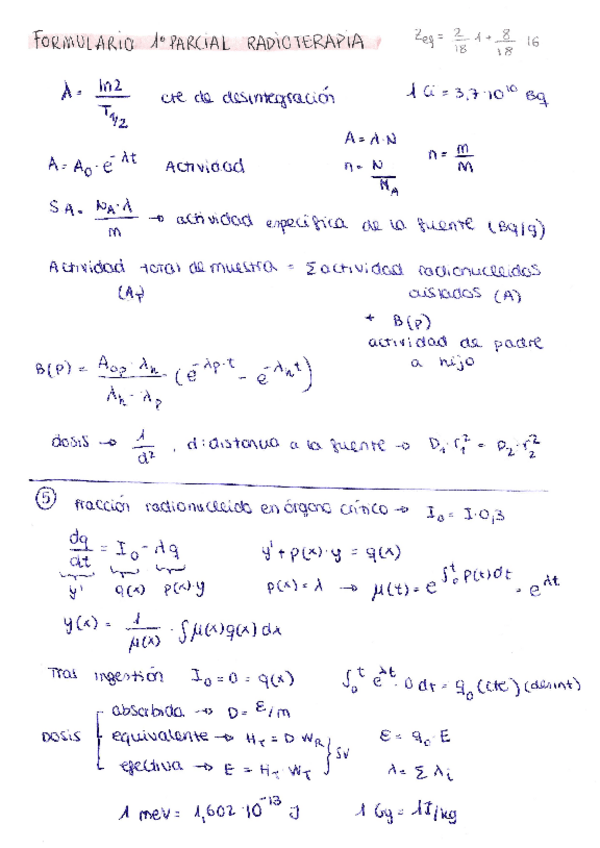 FORMULARIO 1º PARCIAL RADIOTERAPIA
Zeq = 2/18 · 1 + 8/18 · 16
λ = ln2 / T1/2 cte de desintegración 1 Ci = 3,7·10^10 Bq
A = A0 · e^-λt Actividad A = λ·N n = N/NA n = m/M
SA = NA·λ / m → actividad específica de la fuente (Bq/g)
Actividad total de muestra = Σ actividad radionucleidos
(AT) aislados (A)
+ B(p)
actividad de padre
a hijo
B(P) = A0p · λh / λh - λp (e^-λp·t - e^-λh t)
dosis → 1/d² , d: distancia a la fuente → D1·r1² = D2·r2²
⑤ Fracción radionucleido en órgano crítico → I0 = I·0,3
dq/dt = I0 - λq y' + p(x)·y = q(x)
y' q(x) p(x)·y p(x) = λ → μ(t) = e^∫0^t p(t)dt = e^λt
y(x) = 1/μ(x) · ∫μ(x)q(x)dx
Tras ingestión I0 = 0 = q(x) ∫0^t e^λt · 0 dt = q0 (cte) (desint)
absorbida → D = ε/m
Dosis equivalente → HT = D WR } Sv ε = q0 · E
efectiva → E = HT · WT λ = Σ λi
1 MeV = 1,602·10^-13 J 1 Gy = 1J/kg